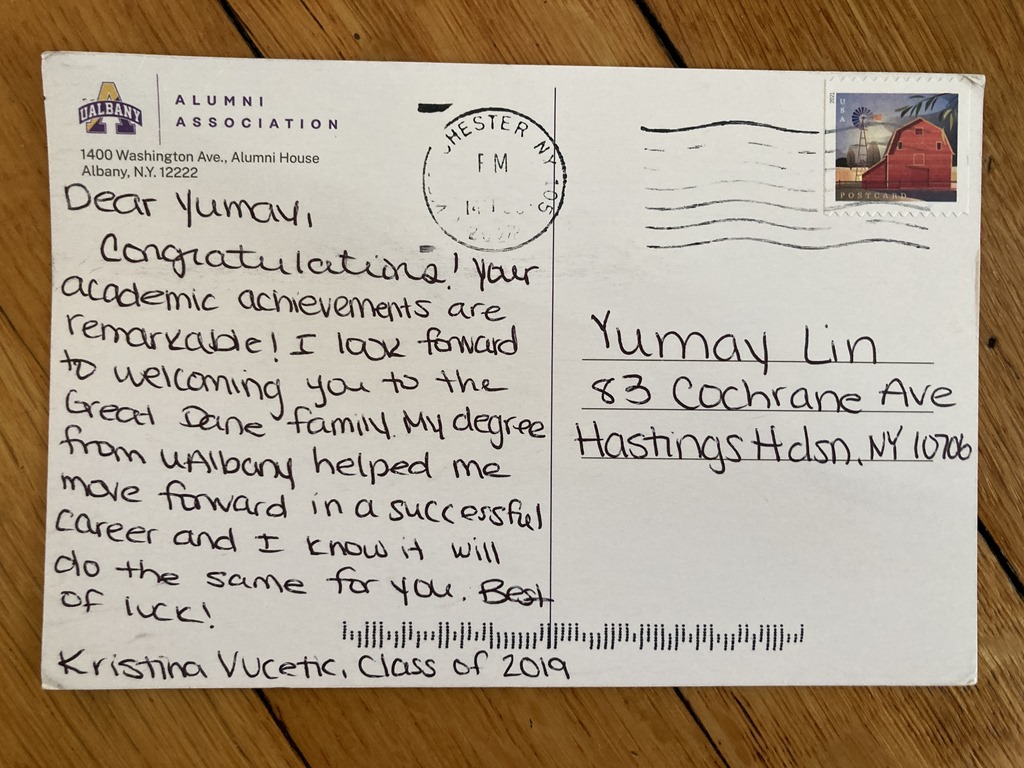 UALBANY
ALUMNI
ASSOCIATION
1400 Washington Ave., Alumni House
Albany, N.Y. 12222
Dear Yumay,
Congratulations! Your
academic achievements are
remarkable! I look forward
to welcoming you to the
Great Dane family. My degree
from UAlbany helped me
move forward in a successful
career and I know it will
do the same for you. Best
of luck!
Kristina Vucetic, Class of 2019
CHESTER NY 105
PM
2021
USA
POSTCARD
Yumay Lin
83 Cochrane Ave
Hastings Hdsn, NY 10706